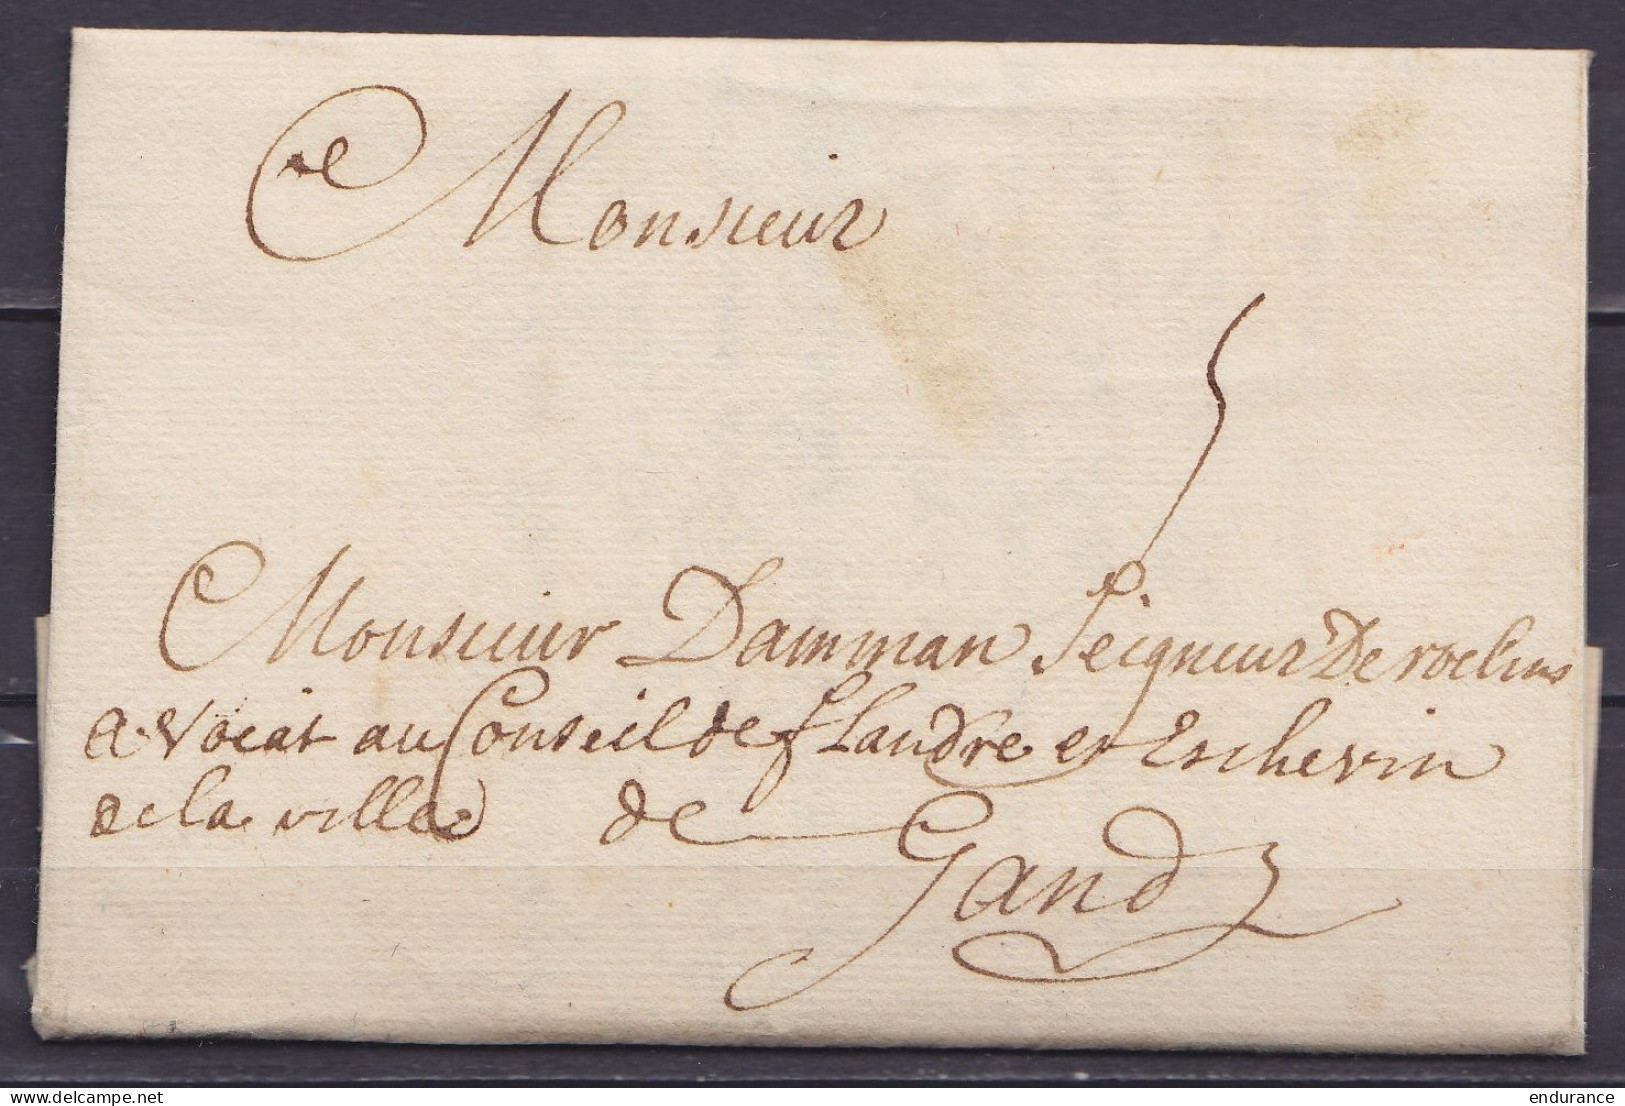 Monsieur
5
Monsieur Damman Seigneur De
avocat au Conseil de flandre et Eschevin
de la ville de Gand
endurance